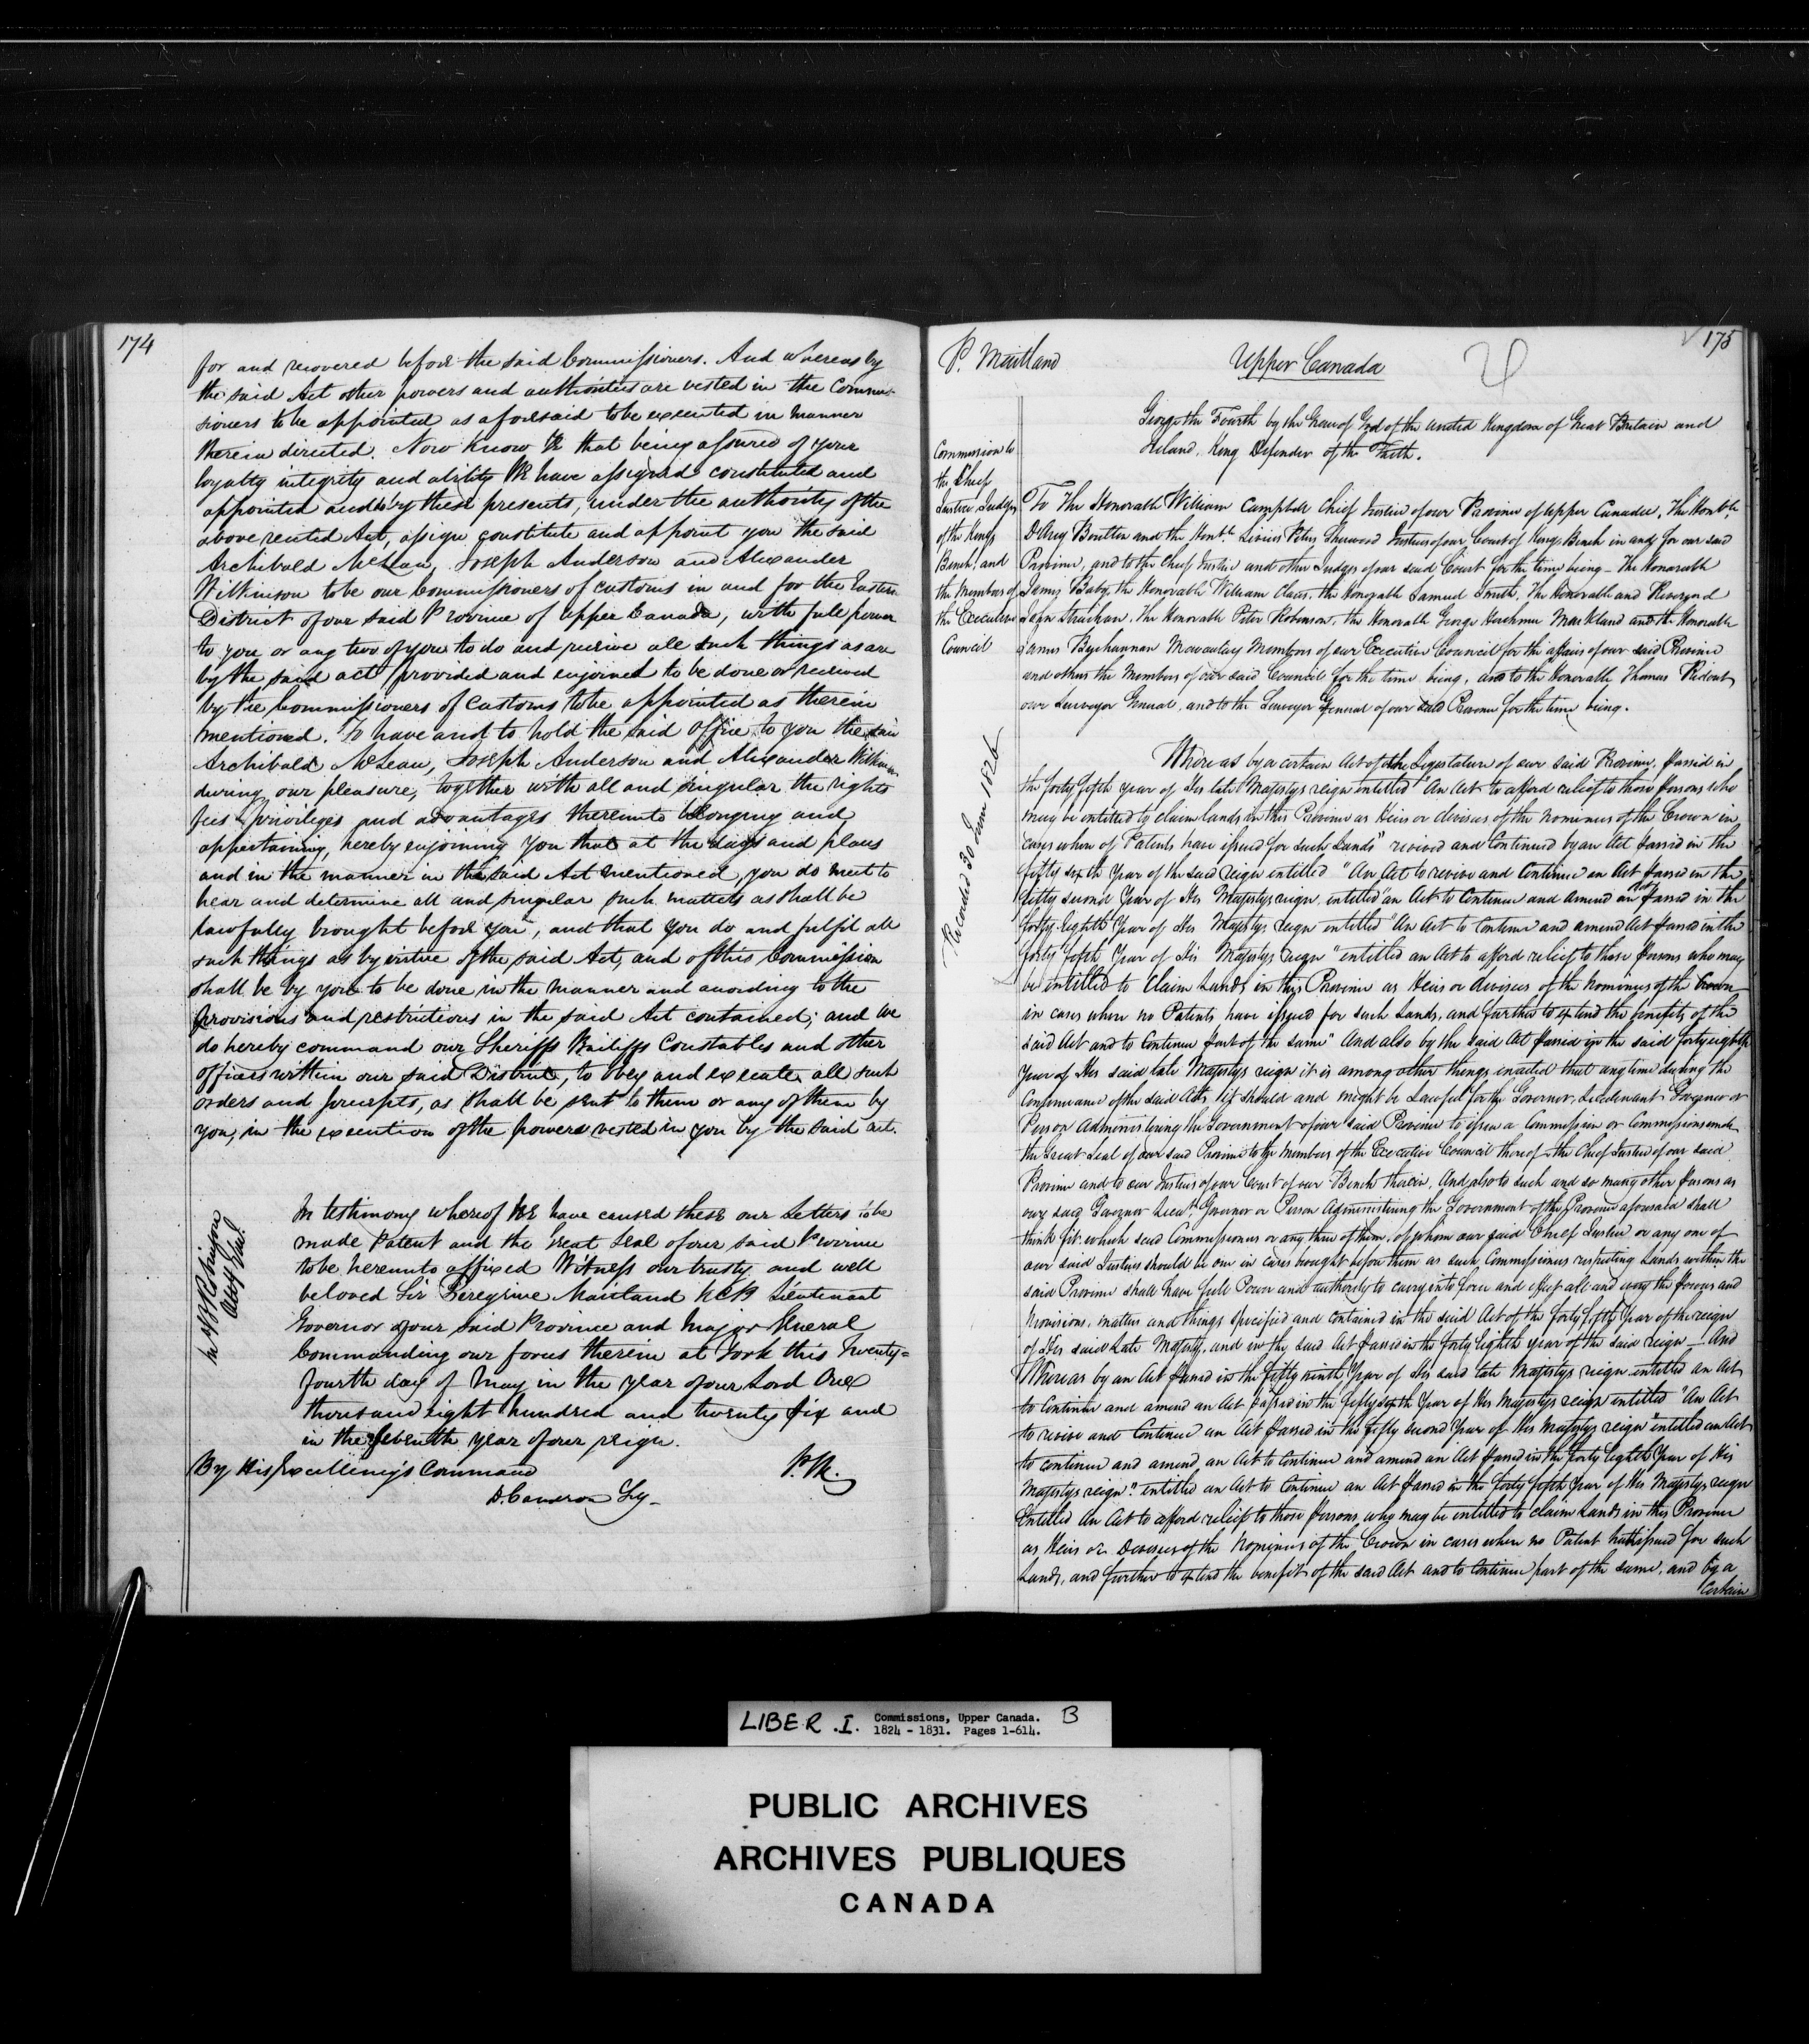 174
for and recovered before the said Commissioners. And whereas by
the said Act other powers and authorities are vested in the Commis-
sioners to be appointed as aforesaid to be executed in manner
therein directed. Now Know Ye that being assured of your
loyalty integrity and ability We have assigned constituted and
appointed and by these presents, under the authority of the
above recited Act, assign constitute and appoint you the said
Archibald McLean, Joseph Anderson and Alexander
Wilkinson to be our Commissioners of Customs in and for the Eastern
District of our said Province of Upper Canada, with full power
to you or any two of you to do and receive all such things as are
by the said act provided and enjoined to be done or received
by the Commissioners of Customs to be appointed as therein
mentioned. To have and to hold the said office to you the said
Archibald McLean, Joseph Anderson and Alexander Wilkinson
during our pleasure, together with all and singular the rights
fees privileges and advantages thereunto belonging and
appertaining, hereby enjoining you that at the days and places
and in the manner in the said Act mentioned, you do meet to
hear and determine all and singular such matters as shall be
lawfully brought before you, and that you do and fulfil all
such things as by virtue of the said Act, and of this Commission
shall be by you to be done in the manner and according to the
provisions and restrictions in the said Act contained; and We
do hereby command our Sheriffs Bailiffs Constables and other
officers within our said District, to obey and execute all such
orders and precepts, as shall be sent to them or any of them by
you, in the execution of the powers vested in you by the said act.
In testimony whereof We have caused these our Letters to be
made Patent and the Great Seal of our said Province
to be hereunto affixed Witness our trusty and well
beloved Sir Peregrine Maitland KCB Lieutenant
Governor of our said Province and Major General
Commanding our forces therein at York this Twenty=
fourth day of May in the year of our Lord One
thousand eight hundred and twenty six and
in the seventh year of our reign.
P.M.
By His Excellency's Command
D. Cameron Secy
Jn B Robinson
Atty Genl
175
P. Maitland
Upper Canada
George the Fourth by the Grace of God of the United Kingdom of Great Britain and
Ireland, King Defender of the Faith.
Commission to
the Chief
Justice Judges
of the Kings
Bench, and
the Members of
the Executive
Council
Recorded 30 June 1826
To The Honorable William Campbell Chief Justice of our Province of Upper Canada, The Honble.
D'Arcy Boulton and the Honble Livius Peters Sherwood Justices of our Court of Kings Bench in and for our said
Province, and to the Chief Justice and other Judges of our said Court for the time being - The Honorable
James Baby, the Honorable William Claus, the Honorable Samuel Smith, The Honorable and Reverend
John Strachan, The Honorable Peter Robinson, the Honorable George Herchmer Markland and the Honorable
James Buchannan Macaulay Members of our Executive Council for the affairs of our said Province
and others the Members of our said Council for the time being, and to the Honorable Thomas Ridout
our Surveyor General, and to the Surveyor General of our said Province for the time being.
Whereas by a certain Act of the Legislature of our said Province, passed in
the forty fifth year of His late Majestys reign intitled "An Act to afford relief to those persons who
may be entitled to claim lands in this Province as Heirs or devisees of the nominees of the Crown in
cases where of Patents have issued for such Lands" revived and Continued by an Act passed in the
fifty sixth Year of the said reign entitled "An Act to revive and Continue an Act passed in the
fifty second Year of His Majestys reign, entitled "an Act to Continue and amend an Act passed in the
forty-eighth Year of His Majestys Reign entitled "An Act to Continue and amend Act passed in the
forty fifth Year of His Majestys reign "entitled an Act to afford relief to those persons who may
be intitled to Claim Lands in this Province as Heirs or devisees of the Nominees of the Crown
in cases where no Patents have issued for such Lands, and further to extend the benefits of the
said Act and to Continue part of the same" And also by the said Act passed in the said forty eighth
Year of His said late Majestys reign it is among other things enacted that any time during the
Continuance of the said Acts it should and might be Lawful for the Governor, Lieutenant Governor or
Person Administering the Government of our said Province to issue a Commission or Commissions under
the Great Seal of our said Province to the Members of the Executive Council thereof the Chief Justice of our said
Province and to our Justices of our Court of our Bench therein, And also to such and so many other Persons as
our said Governor Lieut. Governor or Person Administering the Government of the Province aforesaid shall
think fit which said Commissioners or any three of them, of whom our said Chief Justice or any one of
our said Justices should be one in cases brought before them as such Commissioners respecting Lands within the
said Province shall have full Power and authority to carry into force and effect all and every the powers and
Provisions, matters and things specified and contained in the said Act of the forty fifth Year of the reign
of His said Late Majesty, and in the said Act passed in the forty Eighth year of the said reign - And
Whereas by an Act passed in the fifty ninth Year of His said late Majestys reign entitled an Act
to Continue and amend an Act passed in the fifty sixth Year of His Majestys reign entitled "An Act
to revive and Continue an Act passed in the fifty second Year of His Majestys reign "entitled an Act
to continue and amend, an Act to Continue and amend an Act passed in the forty Eighth Year of His
Majestys reign" entitled an Act to Continue an Act passed in the forty fifth Year of His Majestys reign
Entitled An Act to afford relief to those persons who may be entitled to claim Lands in this Province
as Heirs or Devisees of the Nominees of the Crown in cases where no Patent hath issued for such
Lands, and further to extend the benefit of the said Act and to Continue part of the same, and by a
Certain
LIBER .I. Commissions, Upper Canada. B
1824 - 1831. Pages 1-614.
PUBLIC ARCHIVES
ARCHIVES PUBLIQUES
CANADA